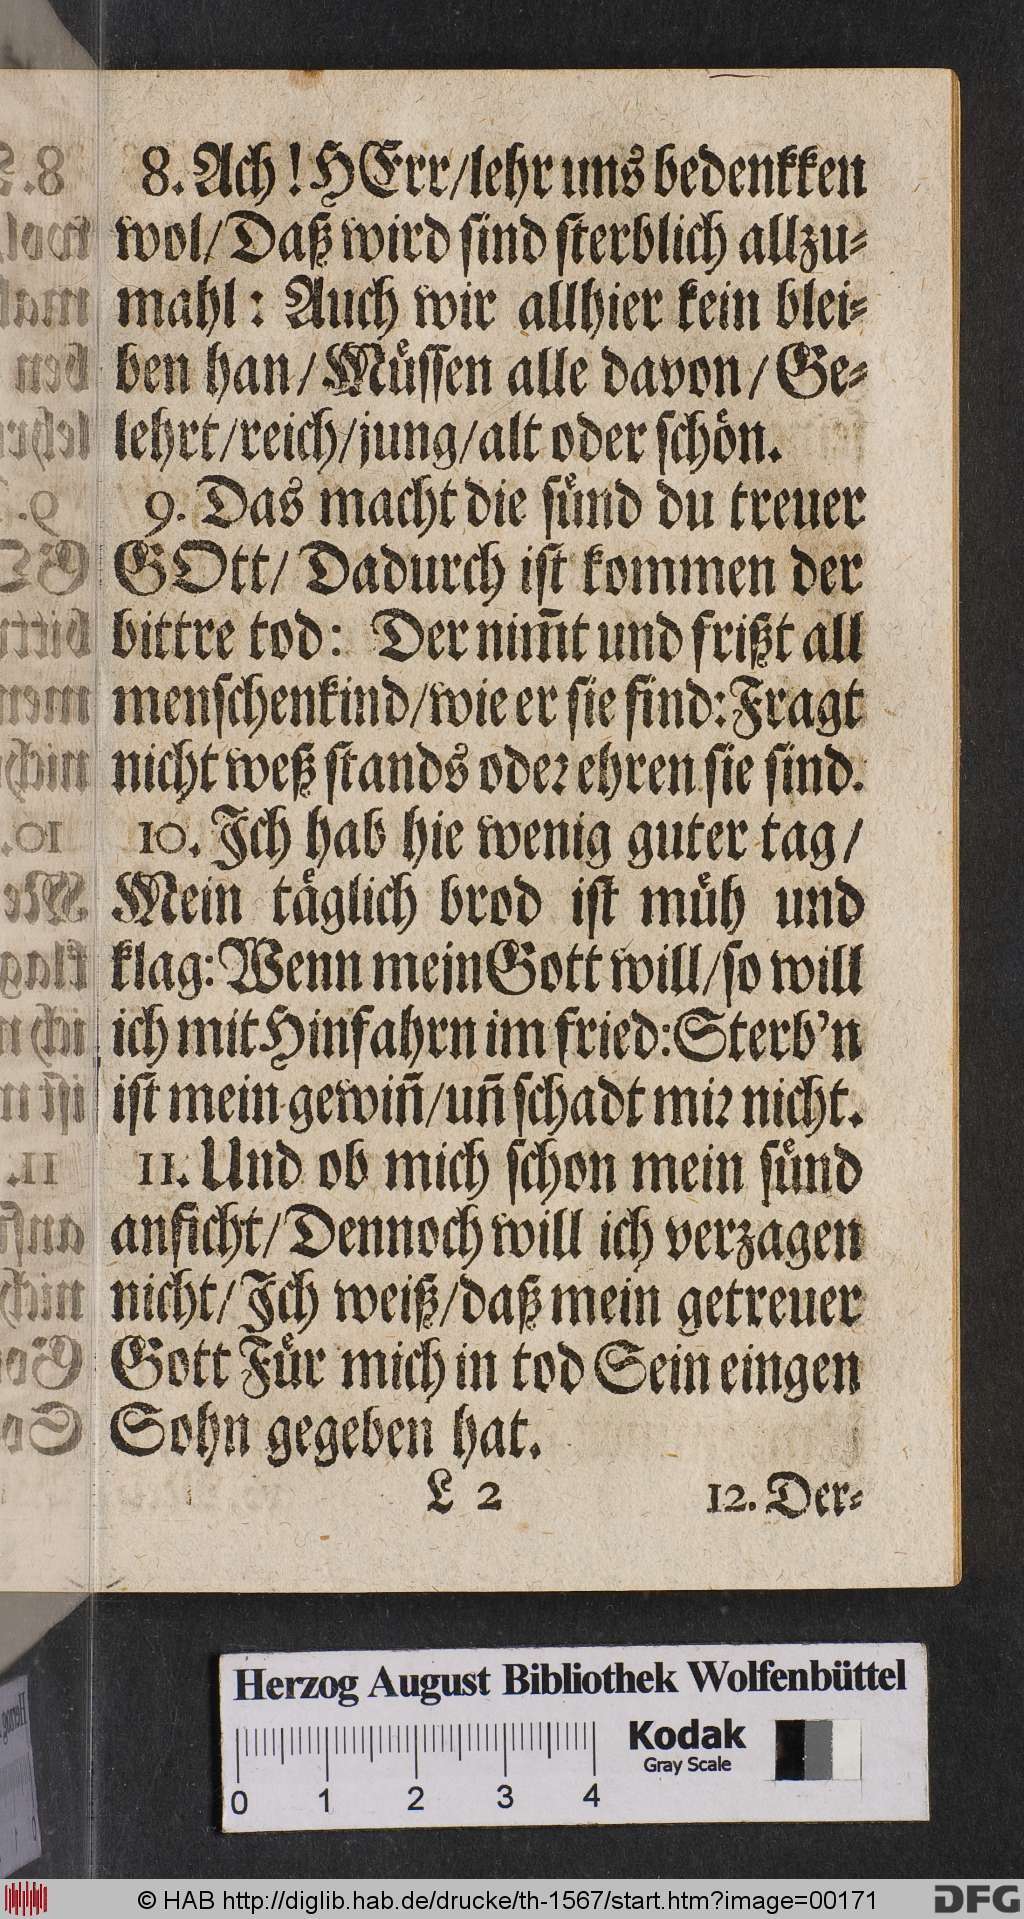 8. Ach! HErr/lehr uns bedenkken
wol/ Daß wird sind sterblich allzu-
mahl: Auch wir allhier kein blei-
ben han/Müssen alle davon/ Ge-
lehrt/reich/jung/alt oder schön.
9. Das macht die sünd du treuer
GOtt/ Dadurch ist kommen der
bittre tod: Der nim̃t und frißt all
menschenkind/wie er sie find: Fragt
nicht weß stands oder ehren sie sind.
10. Ich hab hie wenig guter tag/
Mein täglich brod ist müh und
klag: Wenn mein Gott will/so will
ich mit Hinfahrn im fried: Sterb'n
ist mein gewiñ/uñ schadt mir nicht.
11. Und ob mich schon mein sünd
anficht/Dennoch will ich verzagen
nicht/Ich weiß/daß mein getreuer
Gott Für mich in tod Sein eingen
Sohn gegeben hat.
L 2 12. Der-
Herzog August Bibliothek Wolfenbüttel
Kodak
Gray Scale
0 1 2 3 4
© HAB http://diglib.hab.de/drucke/th-1567/start.htm?image=00171
DFG